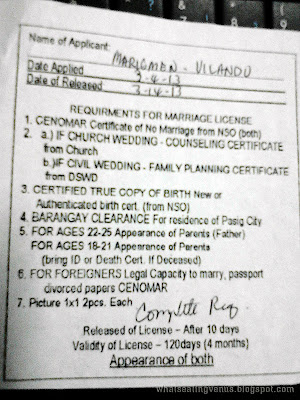 Name of Applicant:
MARICMEN - VILANDO
Date Applied 3-4-13
Date of Released: 3-14-13
REQUIRMENTS FOR MARRIAGE LICENSE
1. CENOMAR Certificate of No Marriage from NSO (both)
2. a.) IF CHURCH WEDDING - COUNSELING CERTIFICATE
from Church
b.)IF CIVIL WEDDING - FAMILY PLANNING CERTIFICATE
from DSWD
3. CERTIFIED TRUE COPY OF BIRTH New or
Authenticated birth cert. (from NSO)
4. BARANGAY CLEARANCE For residence of Pasig City
5. FOR AGES 22-25 Appearance of Parents (Father)
FOR AGES 18-21 Appearance of Parents
(bring ID or Death Cert. If Deceased)
6. FOR FOREIGNERS Legal Capacity to marry, passport
divorced papers CENOMAR
7. Picture 1x1 2pcs. Each
Complete Req.
Released of License – After 10 days
Validity of License – 120days (4 months)
Appearance of both
whatsailingvenus.blogspot.com